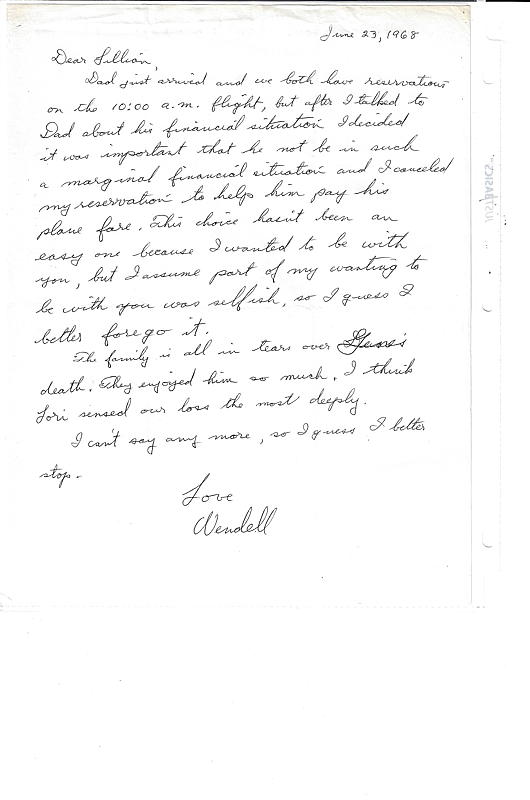 June 23, 1968
Dear Lillian,
Dad just arrived and we both have reservations
on the 10:00 a.m. flight, but after I talked to
Dad about his financial situation I decided
it was important that he not be in such
a marginal financial situation and I canceled
my reservation to help him pay his
plane fare. This choice hasn't been an
easy one because I wanted to be with
you, but I assume part of my wanting to
be with you was selfish, so I guess I
better forego it.
The family is all in tears over Gene's
death. They enjoyed him so much. I think
Lori sensed our loss the most deeply.
I can't say any more, so I guess I better
stop.
Love
Wendell